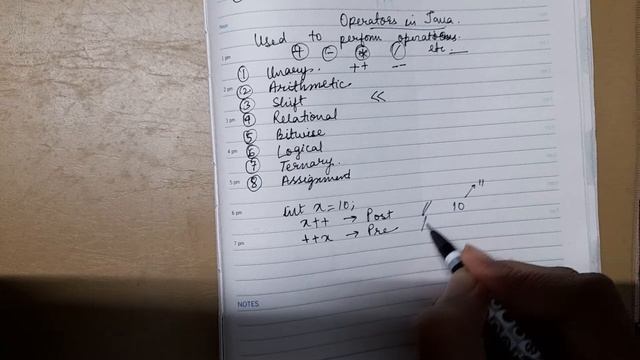 Operators in Java.
Used to perform operations.
+ - * / etc.
1 Unary. ++ --
2 Arithmetic
3 Shift <<
4 Relational
5 Bitwise
6 Logical
7 Ternary.
8 Assignment
int x=10;
x++ → Post // 10 → 11
++x → Pre
1 pm
2 pm
3 pm
4 pm
5 pm
6 pm
7 pm
NOTES